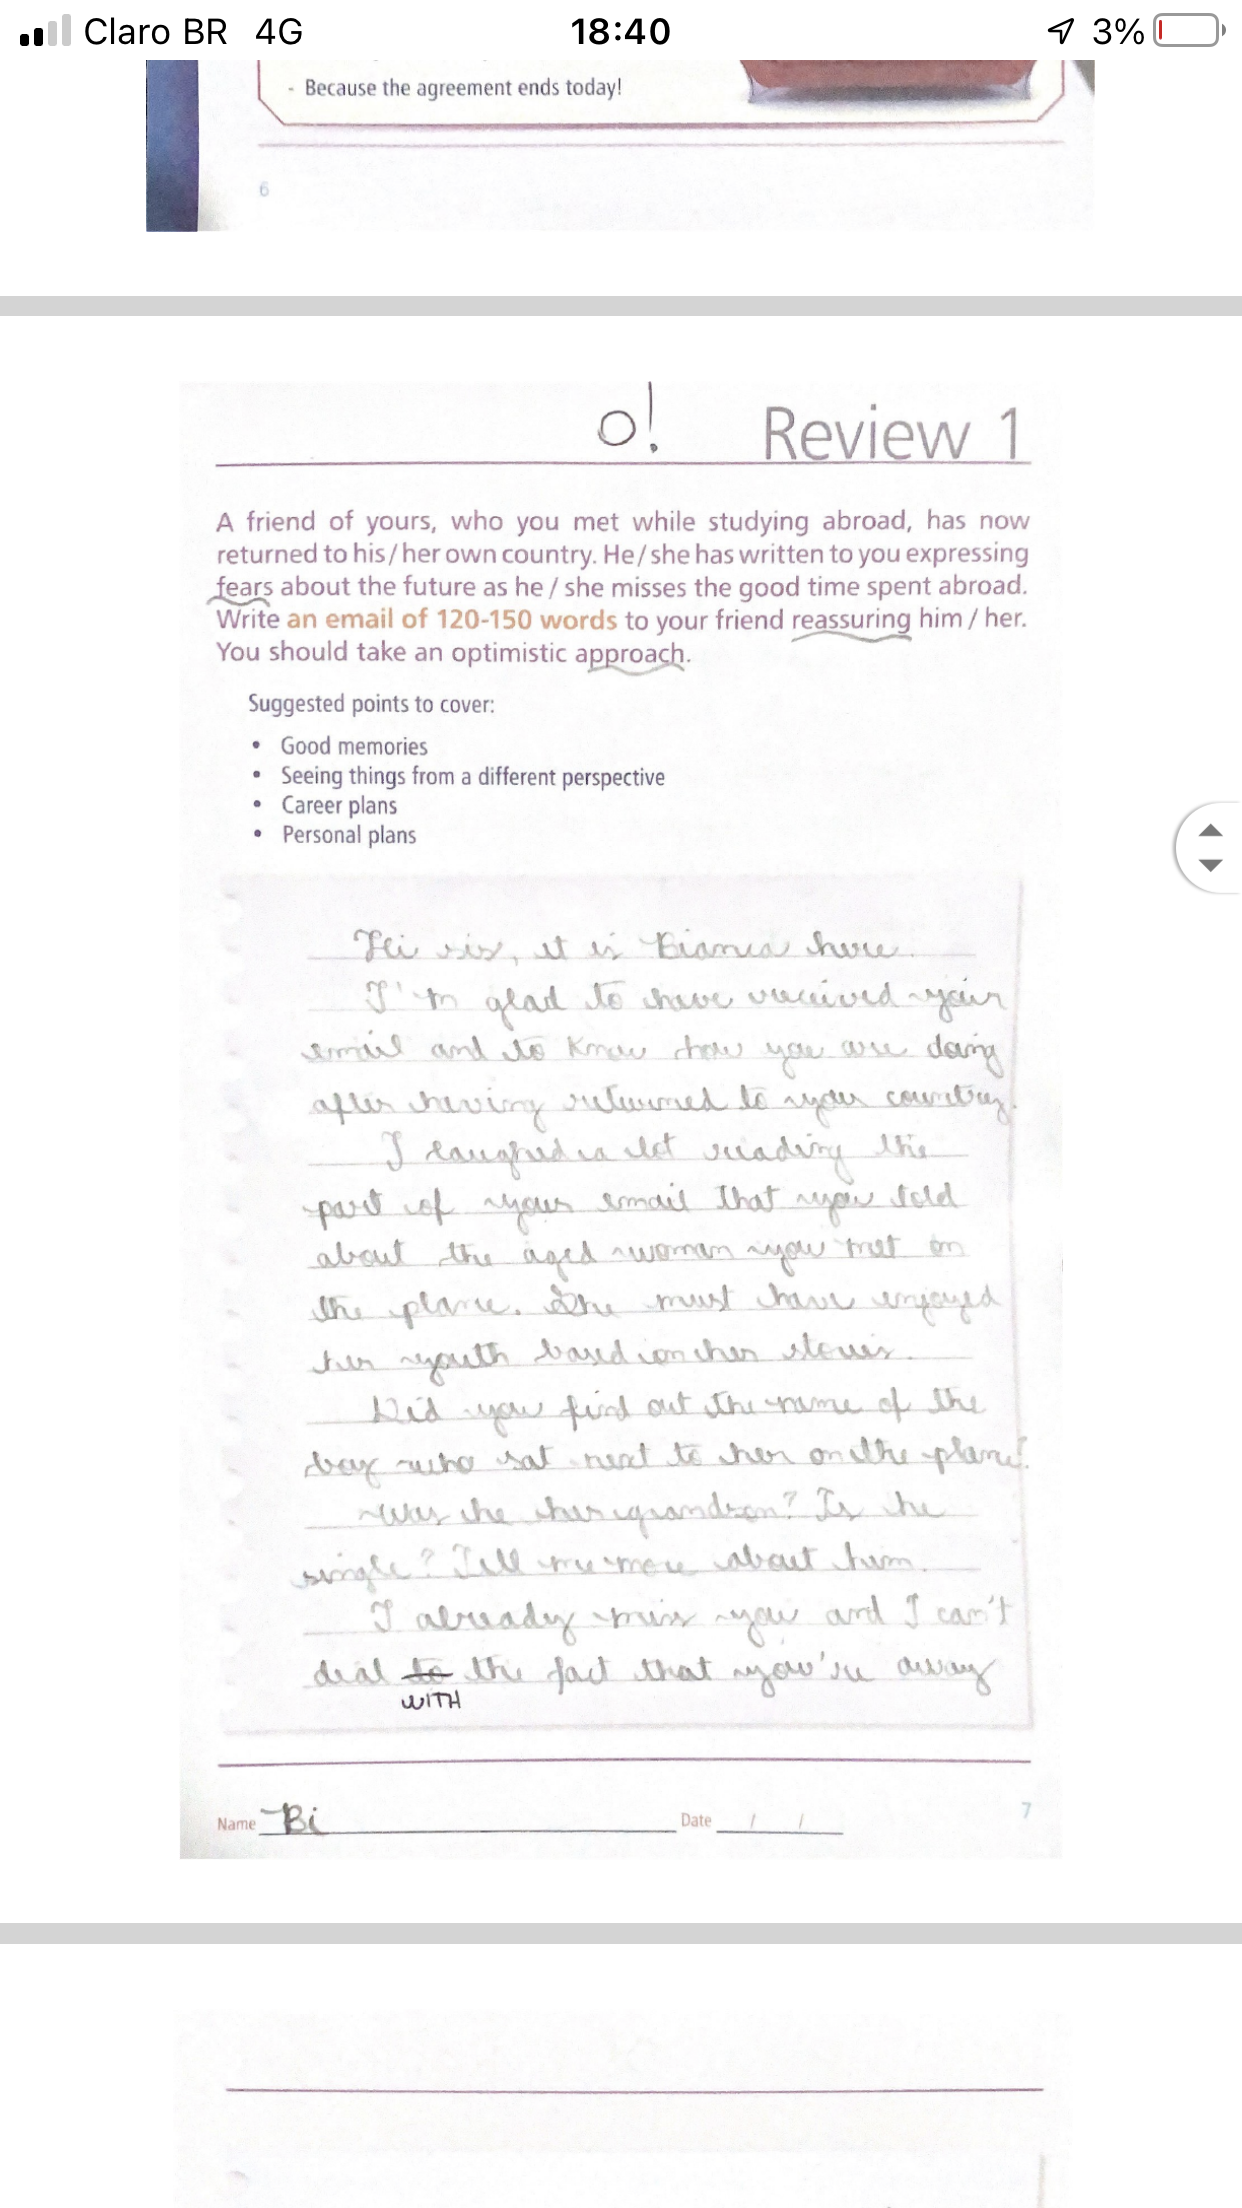 Claro BR 4G 18:40 3%
- Because the agreement ends today!
6
o! Review 1
A friend of yours, who you met while studying abroad, has now
returned to his / her own country. He / she has written to you expressing
fears about the future as he / she misses the good time spent abroad.
Write an email of 120-150 words to your friend reassuring him / her.
You should take an optimistic approach.
Suggested points to cover:
• Good memories
• Seeing things from a different perspective
• Career plans
• Personal plans
Hi sis, it is Bianca here.
I'm glad to have received your
email and to know how you are doing
after having returned to your country.
I laughed a lot reading the
part of your email that you told
about the aged woman you met on
the plane. She must have enjoyed
her youth based on her stories.
Did you find out the name of the
boy who sat next to her on the plane?
Was he her grandson? Is he
single? Tell me more about him.
I already miss you and I can't
deal to the fact that you're away
WITH
Name Bi Date / /
7